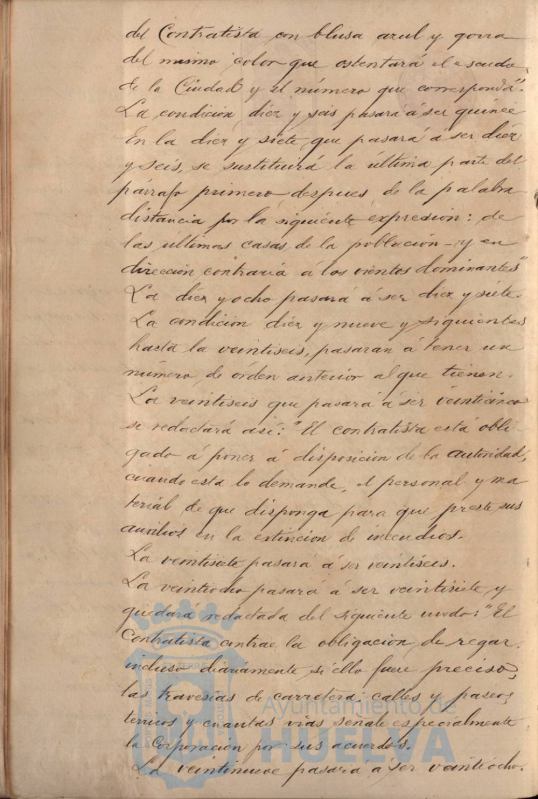 del Contratista con blusa azul y gorra
del mismo color que ostentará el escudo
de la Ciudad y el número que corresponda".
La condición diez y seis pasará á ser quince
En la diez y siete, que pasará á ser diez
y seis, se sustituirá la ultima parte del
párrafo primero despues de la palabra
distancia por la siguiente expresión: de
las ultimas casas de la población - y en
dirección contraria á los vientos dominantes"
La diez y ocho pasará á ser diez y siete.
La condición diez y nueve y siguientes
hasta la veintiseis, pasaran á tener un
número de orden anterior al que tienen.
La veintiseis que pasará á ser veinticinco
se redactará asi: "El contratista está obli
gado á poner á disposicion de la autoridad,
cuando esta lo demande, el personal y ma
terial de que disponga para que preste sus
auxilios en la extincion de incendios.
La veintisiete pasará á ser veintiseis.
La veintiocho pasará á ser veintisiete, y
quedará redactada del siguiente modo: "El
Contratista contrae la obligacion de regar,
incluso diariamente, si ello fuere preciso,
las travesías de carretera, calles y paseos
terrizos y cuantas vias señale especialmente
la Corporacion por sus acuerdos.
La veintinueve pasará á ser veintiocho.
Ayuntamiento de
HUELVA